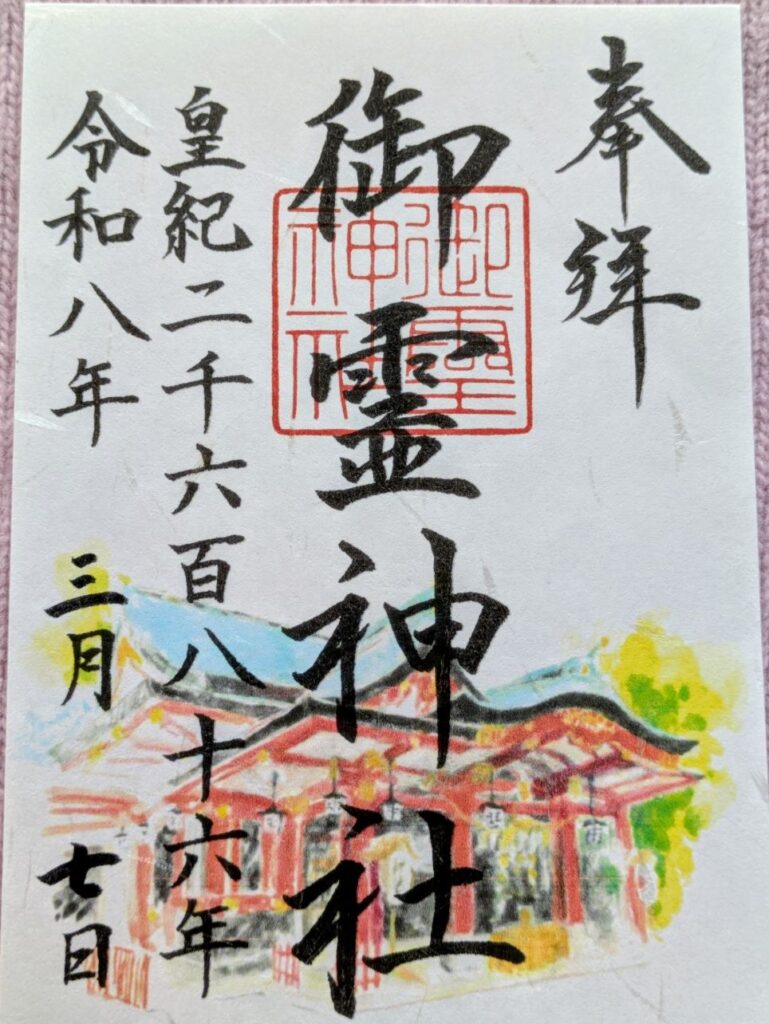 奉拝
御靈神社
御靈神社
皇紀二千六百八十六年
令和八年 三月 七日